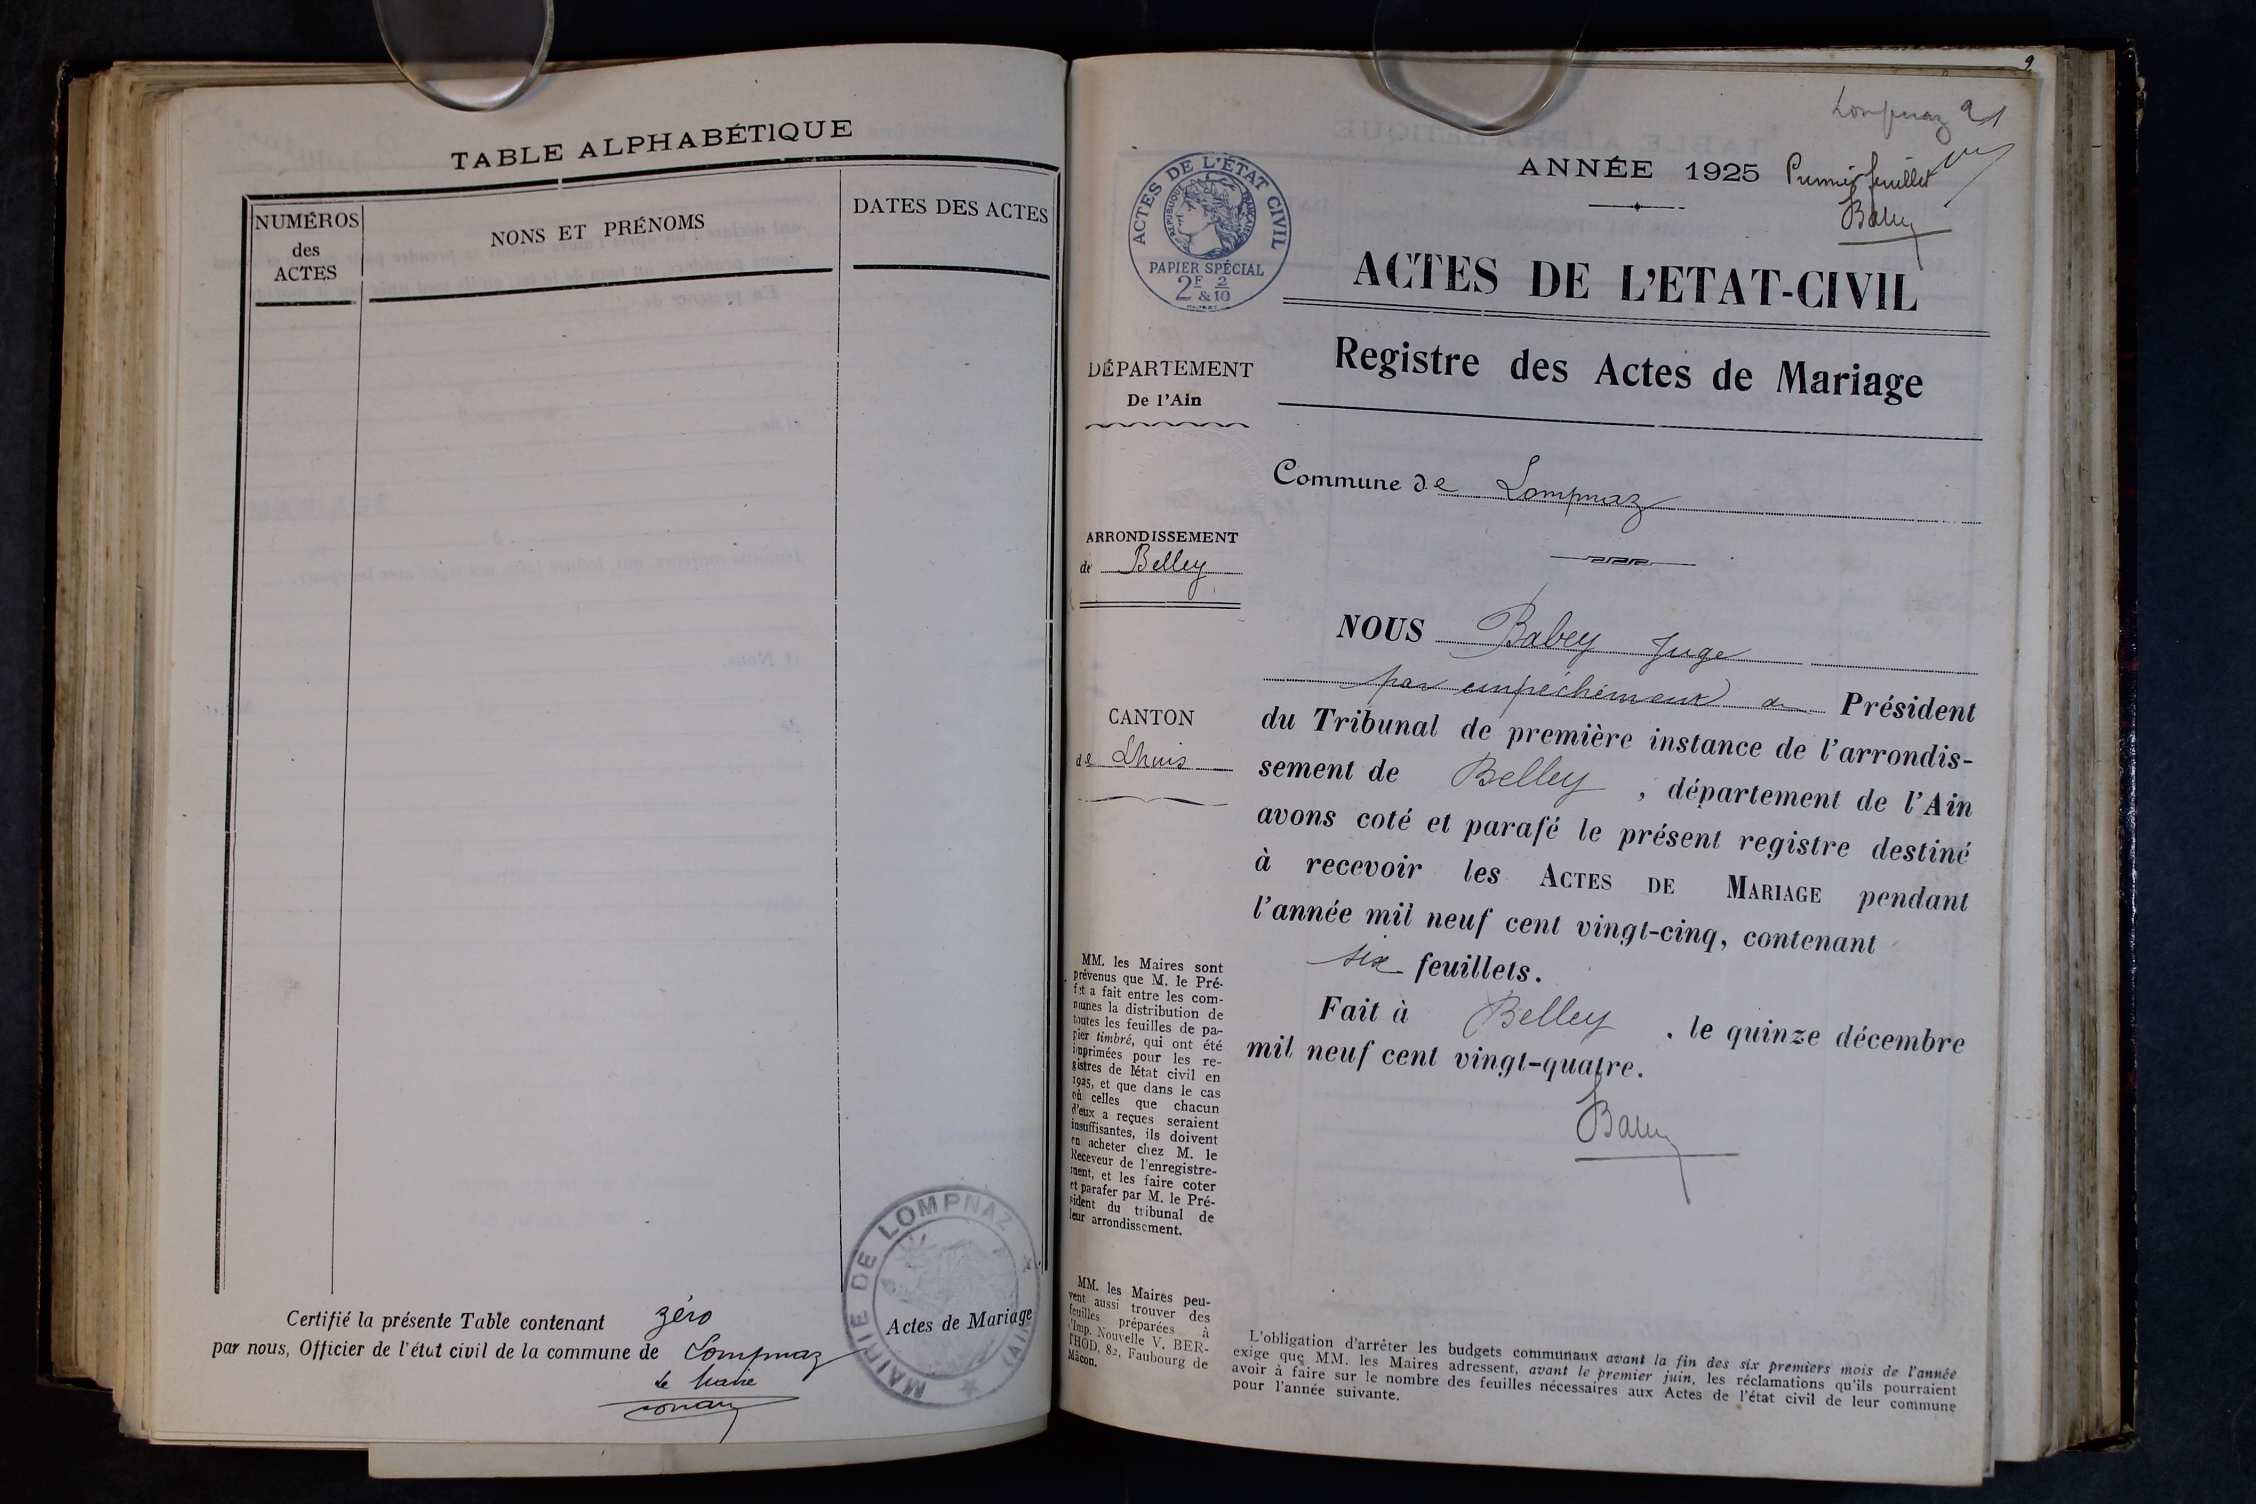 TABLE ALPHABÉTIQUE
NUMÉROS
des
ACTES
NONS ET PRÉNOMS
DATES DES ACTES
Certifié la présente Table contenant zéro Actes de Mariage
par nous, Officier de l'état civil de la commune de Lompnaz
le Maire
MAIRIE DE LOMPNAZ
(AIN)
9
Lompnaz
ANNÉE 1925 Premier feuillet
Babey
ACTES DE L'ÉTAT CIVIL
RÉPUBLIQUE FRANÇAISE
PAPIER SPÉCIAL
2F 2
& 10
ACTES DE L'ETAT-CIVIL
Registre des Actes de Mariage
DÉPARTEMENT
De l'Ain
Commune de Lompnaz
ARRONDISSEMENT
de Belley
CANTON
de Lhuis
NOUS Babey Juge
par empêchement du Président
du Tribunal de première instance de l'arrondis-
sement de Belley, département de l'Ain
avons coté et parafé le présent registre destiné
à recevoir les ACTES DE MARIAGE pendant
l'année mil neuf cent vingt-cinq, contenant
six feuillets.
Fait à Belley, le quinze décembre
mil neuf cent vingt-quatre.
Babey
MM. les Maires sont
prévenus que M. le Pré-
fet a fait entre les com-
munes la distribution de
toutes les feuilles de pa-
pier timbré, qui ont été
imprimées pour les re-
gistres de l'état civil en
1925, et que dans le cas
où celles que chacun
d'eux a reçues seraient
insuffisantes, ils doivent
en acheter chez M. le
Receveur de l'enregistre-
ment, et les faire coter
et parafer par M. le Pré-
sident du tribunal de
leur arrondissement.
MM. les Maires peu-
vent aussi trouver des
feuilles préparées à
l'Imp. Nouvelle V. BER-
THOD, 82, Faubourg de
Mâcon.
L'obligation d'arrêter les budgets communaux avant la fin des six premiers mois de l'année
exige que MM. les Maires adressent, avant le premier juin, les réclamations qu'ils pourraient
avoir à faire sur le nombre des feuilles nécessaires aux Actes de l'état civil de leur commune
pour l'année suivante.